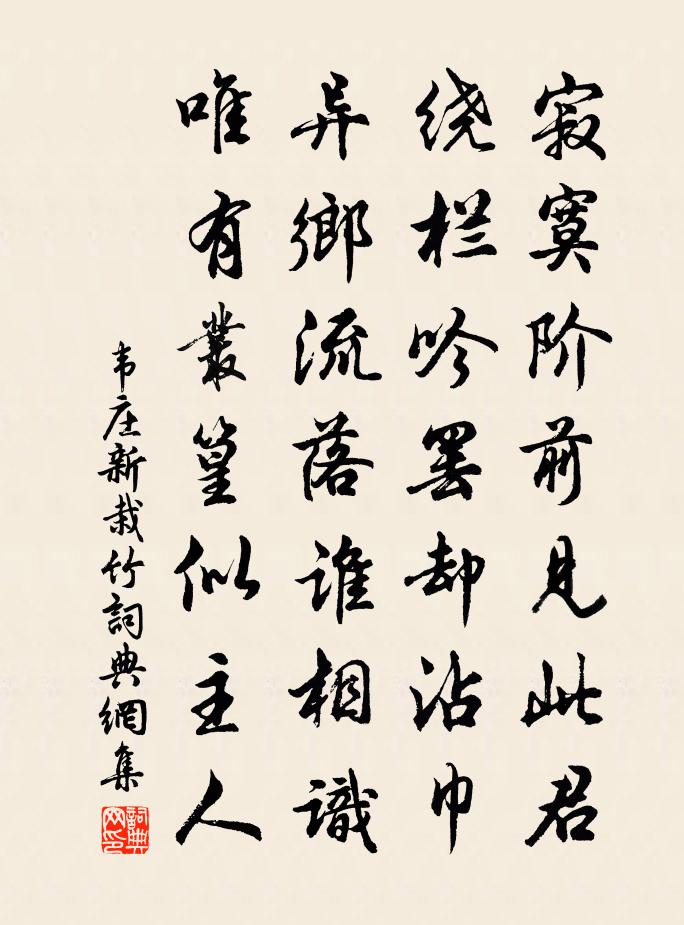 寂寞阶前见此君
绕栏吟罢却沾巾
异鄉流落谁相識
唯有叢篁似主人
韦庄新栽竹詞典網集
詞典网印